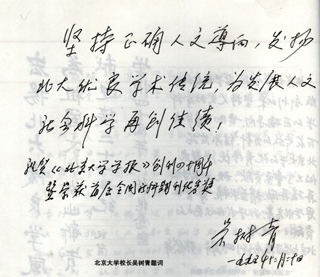 坚持正确人文导向，发扬
北大优良学术传统，为发展人文
社会科学再创佳绩！
祝贺《北京大学学报》创刊四十周年
暨荣获首届全国社科期刊优秀奖
吴树青
一九九五年十二月二十日
北京大学校长吴树青题词